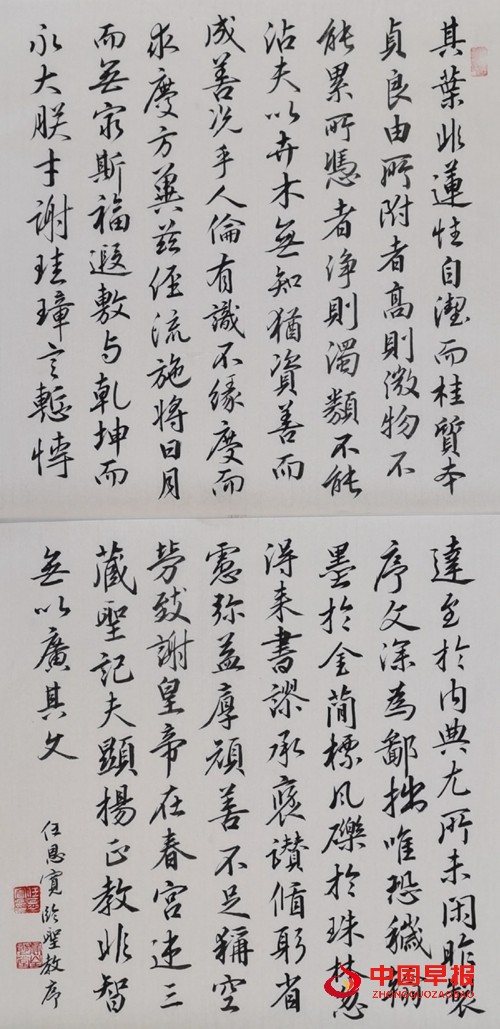 其葉非蓮性自潔而桂質本
貞良由所附者高則微物不
能累所憑者淨則濁類不能
沾夫以卉木無知猶資善而
成善況乎人倫有識不緣慶而
求慶方冀茲經流施將日月
而無窮斯福遐敷与乾坤而
永大朕才謝珪璋言慙博
達至於內典尤所未閑昨製
序文深為鄙拙唯恐穢翰
墨於金簡標瓦礫於珠林忽
得来書謬承褒讚循躬省
慮弥益厚顏善不足稱空
勞致謝皇帝在春宮述三
藏聖記夫顯揚正教非智
無以廣其文
任恩寬臨聖教序
中国早报
ZHONGGUOZAOBAO